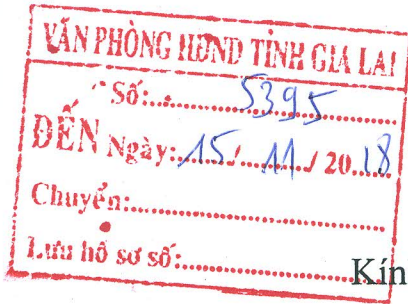 VĂN PHÒNG HĐND TỈNH GIA LAI
Số: 5395
ĐẾN Ngày: 15/ 11 / 2018
Chuyển:
Lưu hồ sơ số:
Kín